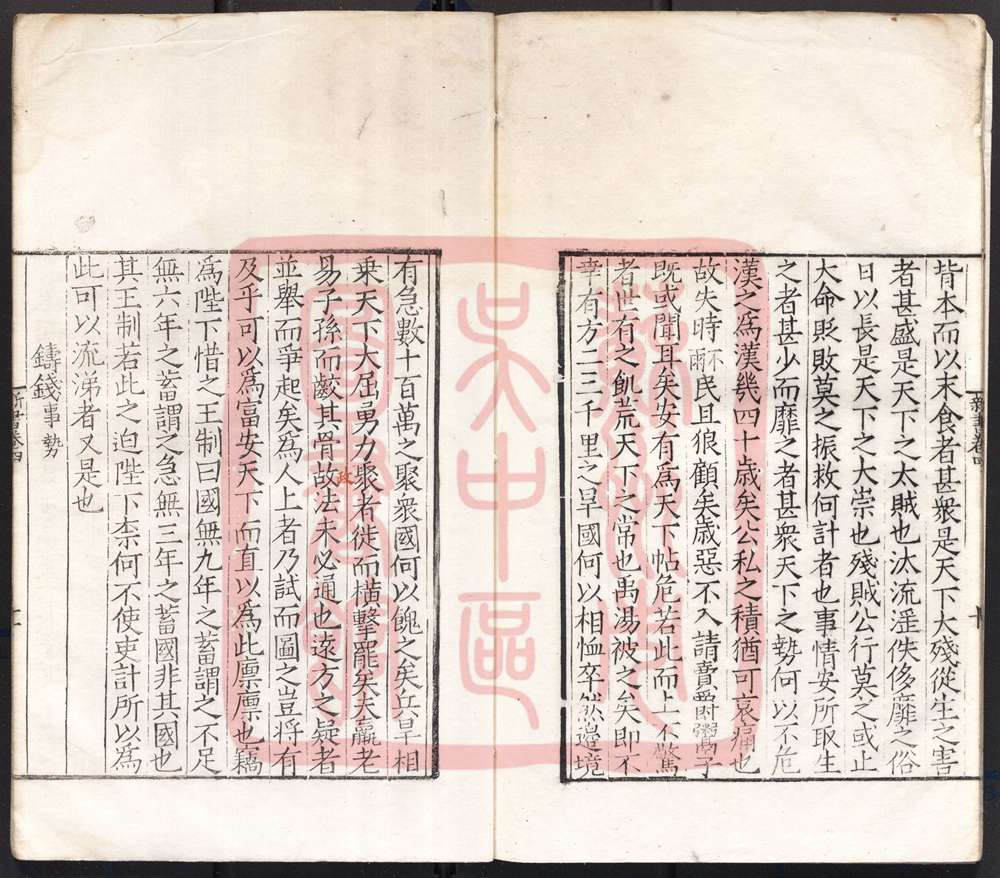 背本而以末食者甚衆是天下大殘從生之害
者甚盛是天下之太賊也汰流淫佚侈靡之俗
日以長是天下之大崇也殘賊公行莫之或止
大命貶敗莫之振救何計者也事情安所取生
之者甚少而靡之者甚衆天下之勢何以不危
漢之爲漢幾四十歲矣公私之積猶可哀痛也
故失時不雨民且狼顧矣歲惡不入請賣爵鬻子
既或聞耳矣安有爲天下阽危若此而上不驚
者世有之飢荒天下之常也禹湯被之矣即不
幸有方二三千里之旱國何以相恤卒然邊境
新書卷四
十
有急數十百萬之聚衆國何以餽之矣兵旱相
乗天下大屈勇力聚者徒而横擊罷矣夫羸老
易子孫而齩其骨故法未必通也遠方之疑者
政
並舉而爭起矣爲人上者乃試而圖之豈將有
及乎可以爲富安天下而直以爲此廪廪也竊
爲陛下惜之王制曰國無九年之蓄謂之不足
無六年之蓄謂之急無三年之蓄國非其國也
其王制若此之迫陛下柰何不使吏計所以爲
此可以流涕者又是也
鑄錢事勢
新書卷四
十一
蘇州
吳中區
圖書館